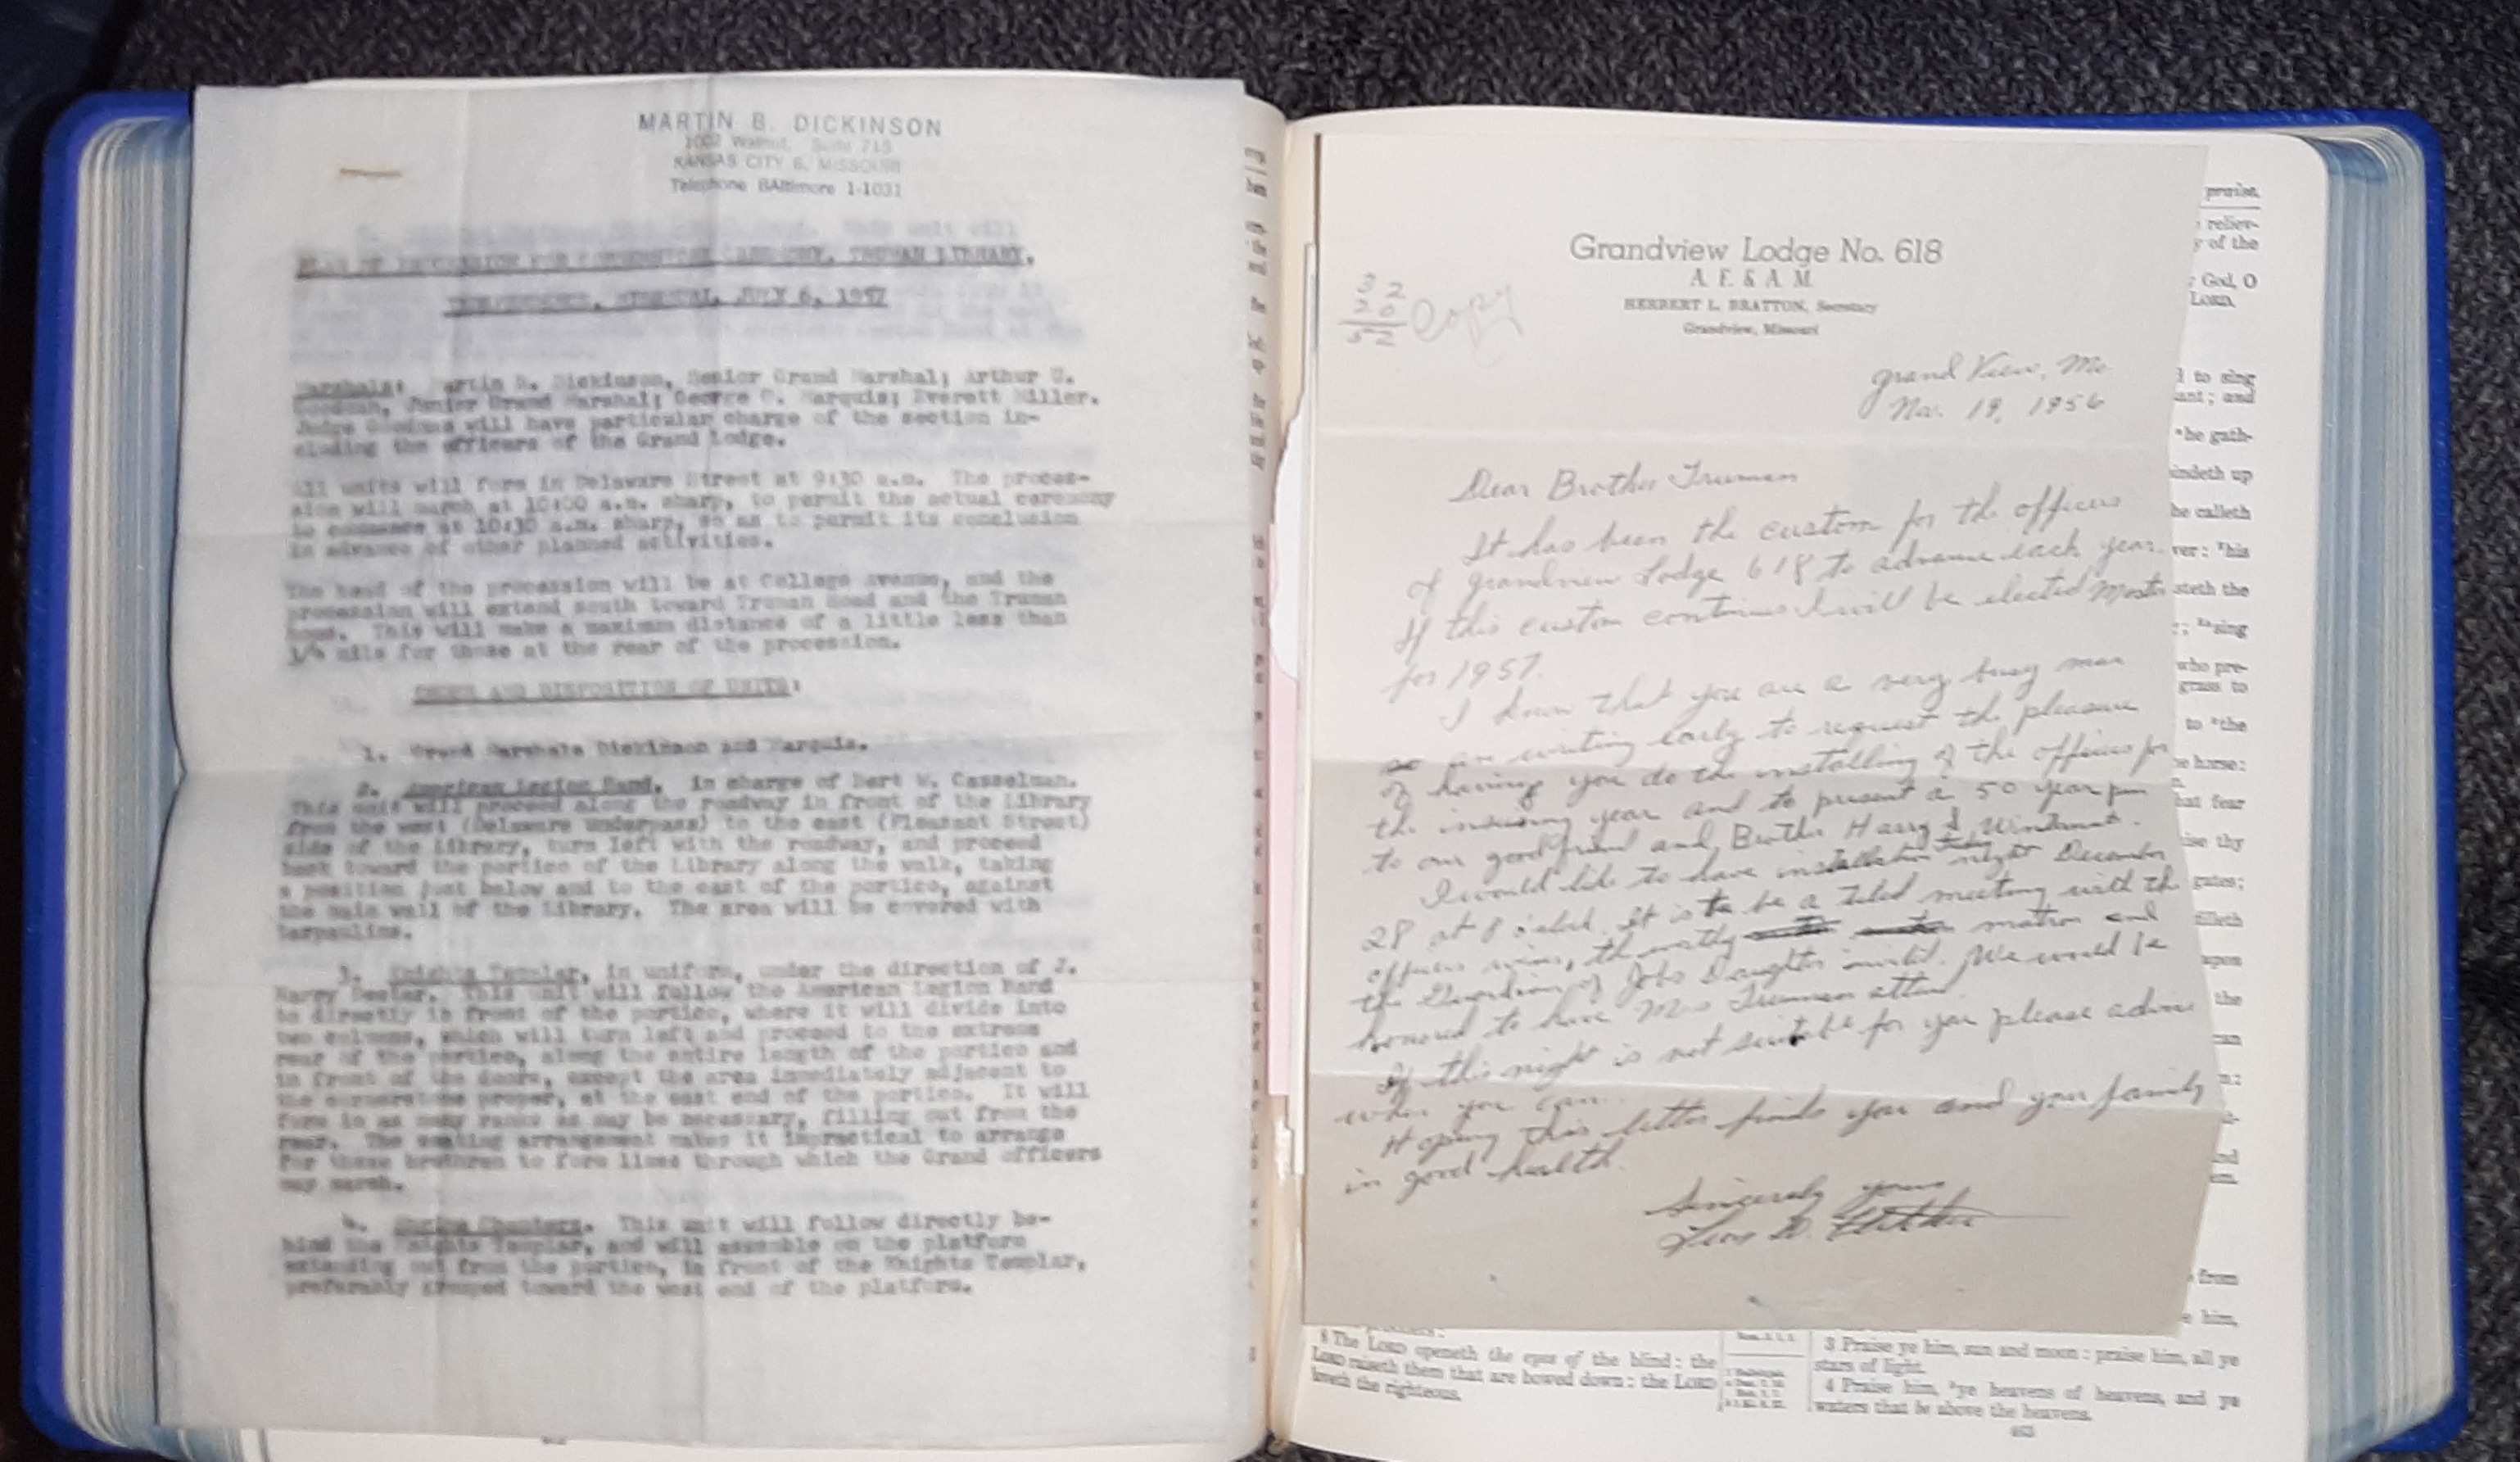 MARTIN B. DICKINSON
1002 Walnut, Suite 715
KANSAS CITY 6, MISSOURI
Telephone BAltimore 1-1031
PLAN OF PROCESSION FOR CORNERSTONE CEREMONY, TRUMAN LIBRARY,
INDEPENDENCE, MISSOURI, JULY 6, 1957
Marshals: Martin B. Dickinson, Senior Grand Marshal; Arthur U.
Goodman, Junior Grand Marshal; George C. Marquis; Everett Miller.
Judge Goodman will have particular charge of the section in-
cluding the officers of the Grand Lodge.
All units will form in Delaware Street at 9:30 a.m. The proces-
sion will march at 10:00 a.m. sharp, to permit the actual ceremony
to commence at 10:30 a.m. sharp, so as to permit its conclusion
in advance of other planned activities.
The head of the procession will be at College avenue, and the
procession will extend south toward Truman Road and the Truman
home. This will make a maximum distance of a little less than
1/4 mile for those at the rear of the procession.
ORDER AND DISPOSITION OF UNITS:
1. Grand Marshals Dickinson and Marquis.
2. American Legion Band, in charge of Bert W. Casselman.
This unit will proceed along the roadway in front of the Library
from the west (Delaware underpass) to the east (Pleasant Street)
side of the Library, turn left with the roadway, and proceed
back toward the portico of the Library along the walk, taking
a position just below and to the east of the portico, against
the main wall of the Library. The area will be covered with
tarpaulins.
3. Knights Templar, in uniform, under the direction of J.
Harry This unit will follow the American Legion Band
to directly in front of the portico, where it will divide into
two columns, which will turn left and proceed to the extreme
rear of the portico, along the entire length of the portico and
in front of the doors, except the area immediately adjacent to
the cornerstone proper, at the east end of the portico. It will
form in as many ranks as may be necessary, filling out from the
rear. The seating arrangement makes it impractical to arrange
for these brethren to form lines through which the Grand officers
may march.
4. Shrine Chanters. This unit will follow directly be-
hind the Knights Templar, and will assemble on the platform
extending out from the portico, in front of the Knights Templar,
preferably grouped toward the west end of the platform.
Grandview Lodge No. 618
A. F. & A. M.
HERBERT L. BRATTON, Secretary
Grandview, Missouri
32
20
52
Copy
Grand View, Mo.
Nov. 19, 1956
Dear Brother Truman
It has been the custom for the officers
of Grandview Lodge 618 to advance each year.
If this custom continues I will be elected Master
for 1957.
I know that you are a very busy man
so am writing early to request the pleasure
of having you do the installing of the officers for
the ensuing year and to present a 50 year pin
to our good friend and Brother Harry
I would like to have installation night December
28 at 8 o'clock. It is to be a tiled meeting with the
officers wives, matron and
the Guardian of Jobs Daughter invited. We would be
honored to have Mrs Truman attend.
If this night is not suitable for you please advise
when you can.
Hoping this letter finds you and your family
in good health.
Sincerely yours
praise.
reliev-
y of the
God, O
LORD.
to sing
ant; and
he gath-
bindeth up
he calleth
ver: his
steth the
sing
who pre-
grass to
to the
horse:
hat fear
ise thy
gates;
filleth
upon
the
from
him,
8 The LORD openeth the eyes of the blind: the
LORD raiseth them that are bowed down: the LORD
loveth the righteous.
3 Praise ye him, sun and moon: praise him, all ye
stars of light.
4 Praise him, ye heavens of heavens, and ye
waters that be above the heavens.